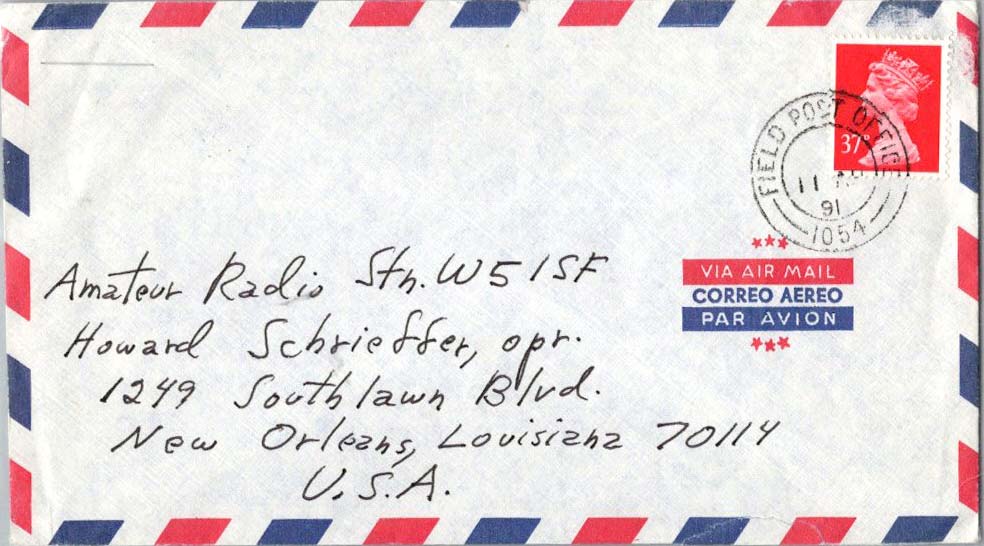 37P
FIELD POST OFFICE
11 AP
91
1054
VIA AIR MAIL
CORREO AEREO
PAR AVION
Amateur Radio Stn. W5ISF
Howard Schrieffer, opr.
1249 Southlawn Blvd.
New Orleans, Louisiana 70114
U.S.A.